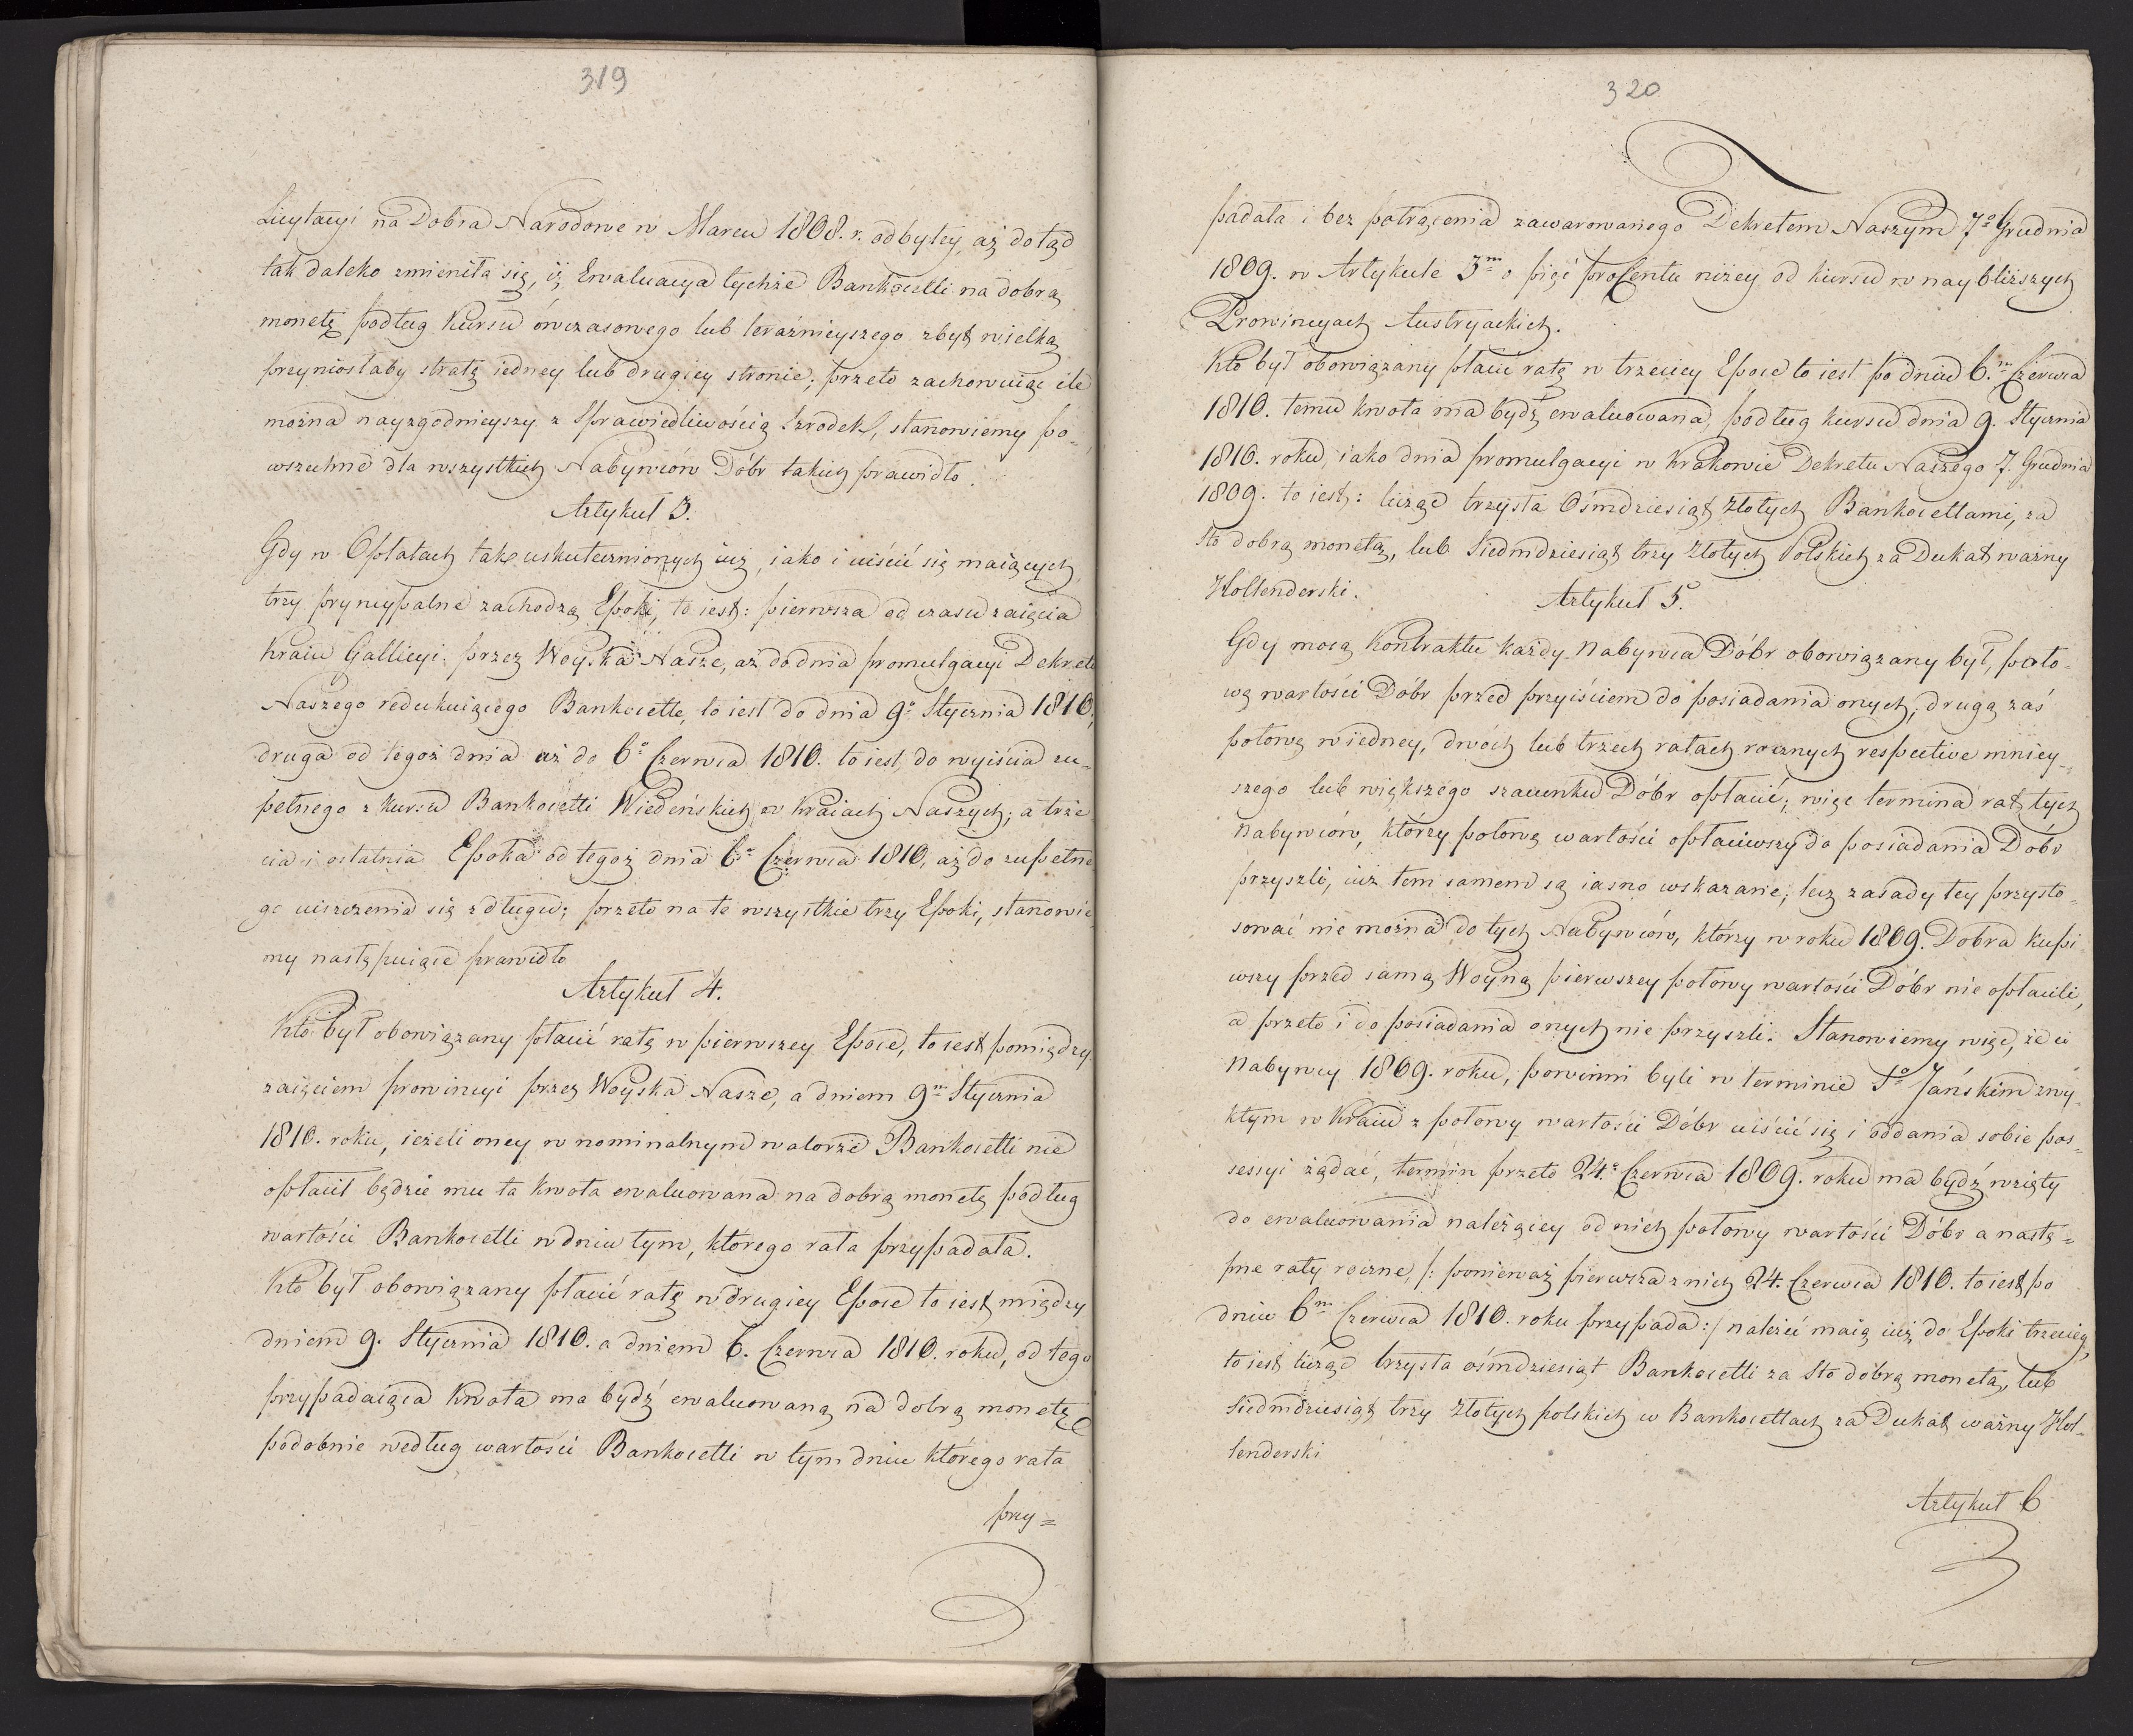 319
Licytacyi na Dobra Narodowe w Marcu 1808. r. odbytey, aż dotąd
tak daleko zmieniła się, iż Ewaluacya tychże Bankocetli na dobrą
monetę podług Kursu ówczasowego lub teraźnieyszego zbyt wielką
przyniosłaby stratę iedney lub drugiey stronie; przeto zachowuiąc ile
można nayzgodnieyszy z Sprawiedliwością szrodek, stanowiemy po-
wszechne dla wszystkich Nabywców Dóbr takich prawidło.
Artykuł 3.
Gdy w Opłatach tak uskutecznionych iuż, iako i uiścić się maiących
trzy pryncypalne zachodzą Epoki, to iest: pierwsza od czasu zaięcia
Kraiu Gallicyi przez Woyska Nasze, aż do dnia promulgacyi Dekretu
Naszego redukuiącego Bankocetle, to iest do dnia 9º Stycznia 1810,
druga od tegoż dnia aż do 6º Czerwca 1810. to iest, do wyiścia zu-
pełnego z kursu Bankocetli Wiedeńskich w Kraiach Naszych; a trze
cia i ostatnia Epoka od tegoż dnia 6º Czerwca 1810, aż do zupełne
go uiszczenia się z długu; przeto na te wszystkie trzy Epoki, stanowie
my następuiące prawidło
Artykuł 4.
Kto był obowiązany płacić ratę w pierwszey Epoce, to iest pomiędzy
zaięciem prowincyi przez Woyska Nasze, a dniem 9m Stycznia
1810. roku, ieżeli oney w nominalnym walorze Bankocetli nie
opłacił będzie mu ta kwota ewaluowana na dobrą monetę podług
wartości Bankocetli w dniu tym, którego rata przypadała.
Kto był obowiązany płacić ratę w drugiey Epoce to iest między
dniem 9. Stycznia 1810. a dniem 6. Czerwca 1810. roku, od tego
przypadaiąca kwota ma bydź ewaluowaną na dobrą monetę
podobnie według wartości Bankocetli w tym dniu którego rata
przy=
320
padała i bez potrącenia zawarowanego Dekretem Naszym 7º Grudnia
1809. w Artykule 3m o pięć procentu niżey od kursu w naybliższych
Prowincyach Austryackich.
Kto był obowiązany płacić ratę w trzeciey Epoce to iest po dniu 6.m Czerwca
1810. temu kwota ma bydź ewaluowana, podług kursu dnia 9. Stycznia
1810. roku, iako dnia promulgacyi w Krakowie Dekretu Naszego 7. Grudnia
1809. to iest: licząc trzysta Ośmdziesiąt Złotych Bankocetlami, za
sto dobrą monetą, lub Siedmdziesiąt trzy Złotych Polskich za Dukat ważny
Hollenderski.
Artykuł 5.
Gdy mocą Kontraktu każdy Nabywca Dóbr obowiązany był, poło-
wę wartości Dóbr przed przyiściem do posiadania onych, drugą zaś
połowę w iedney, dwóch lub trzech ratach rocznych respective mniey-
szego lub większego szacunku Dóbr opłacić; więc termina rat tych
Nabywców, którzy połowę wartości opłaciwszy do posiadania Dóbr
przyszli, iuż tem samem są iasno wskazane; lecz zasady tey przysto-
sować nie można do tych Nabywców, którzy w roku 1809. Dobra kupi
wszy przed samą Woyną pierwszey połowy wartości Dóbr nie opłacili,
a przeto i do posiadania onych nie przyszli. Stanowiemy więc, że ci
Nabywcy 1809. roku, powinni byli w terminie Sº Jańskim zwy-
kłym w Kraiu z połowy wartości Dóbr uiścić się i oddania sobie pos-
sessyi żądać, termin przeto 24º Czerwca 1809. roku ma bydź wzięty
do ewaluowania należącey od nich połowy wartości Dóbr a nastę=
pne raty roczne, /: ponieważ pierwsza z nich 24. Czerwca 1810. to iest po
dniu 6m Czerwca 1810. roku przypada :/ należeć maią iuż do Epoki trzeciey,
to iest licząc trzysta ośmdziesiąt Bankocetli za Sto dobrą monetą, lub
Siedmdziesiąt trzy Złotych polskich w Bankocetlach za Dukat ważny Hol-
lenderski
Artykuł 6